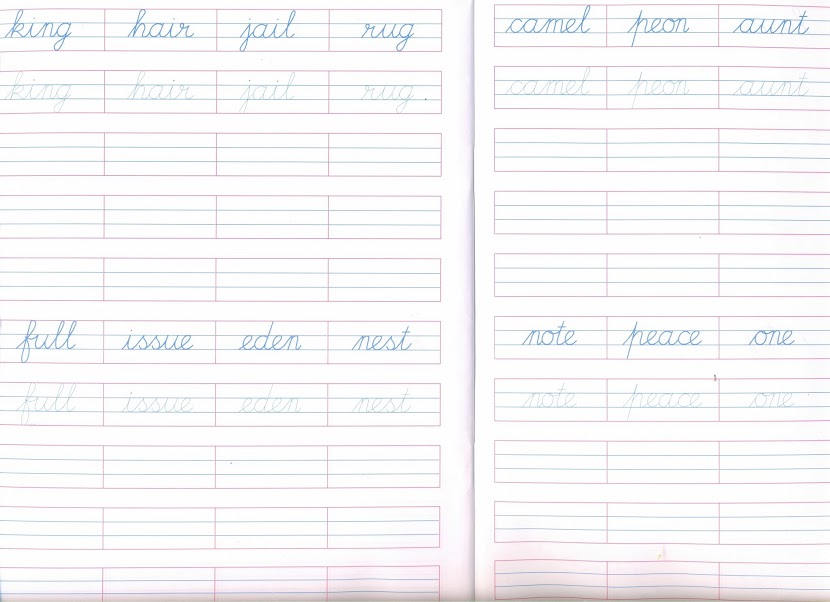 king hair jail rug
king hair jail rug
full issue eden nest
full issue eden nest
camel peon aunt
camel peon aunt
note peace one
note peace one